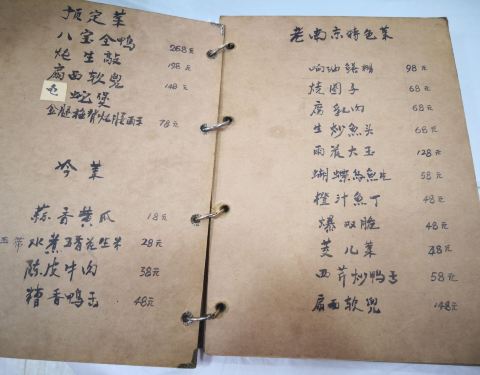 预定菜
八宝全鸭 268元
炖生敲 198元
扁西软兜 148元
蛇煲
金腿 炖腰 78元
冷菜
蒜香黄瓜 18元
水煮五香花生米 28元
陈皮牛肉 38元
糟香鸭舌 48元
老南京特色菜
响油鳝糊 98元
烧圈子 68元
腐乳肉 68元
生炒鱼头 68元
雨花大玉 128元
蝴蝶鱼片 58元
橙汁鱼丁 48元
爆双脆 48元
茭儿菜 48元
西芹炒鸭舌 58元
扁西软兜 148元